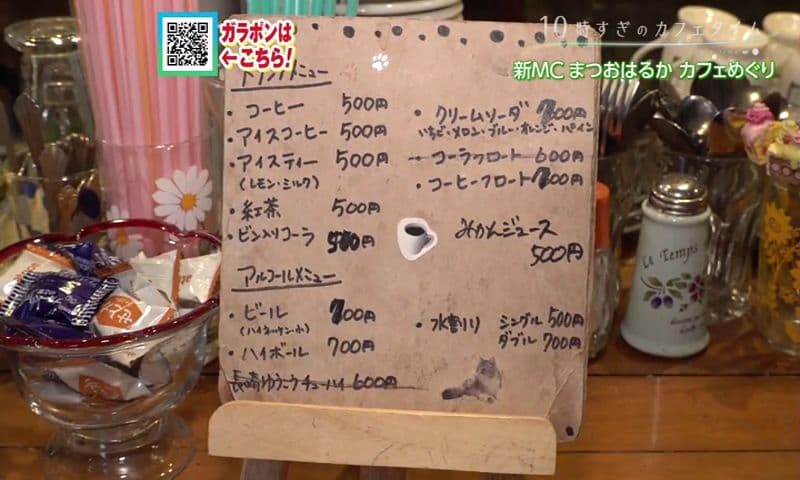 ガラポンは
←こちら!
10時すぎのカフェタイム
新MC まつおはるか カフェめぐり
ドリンクメニュー
・コーヒー 500円
・アイスコーヒー 500円
・アイスティー 500円
(レモン・ミルク)
・紅茶 500円
・ビン入りコーラ 500円
・クリームソーダ 700円
いちご・メロン・ブルー・オレンジ・パイン
・コーラフロート 600円
・コーヒーフロート 700円
みかんジュース
500円
アルコールメニュー
・ビール 700円
(ハイネッケン・小)
・ハイボール 700円
長崎ゆうこうチューハイ 600円
・水割り シングル 500円
ダブル 700円
Le Temps